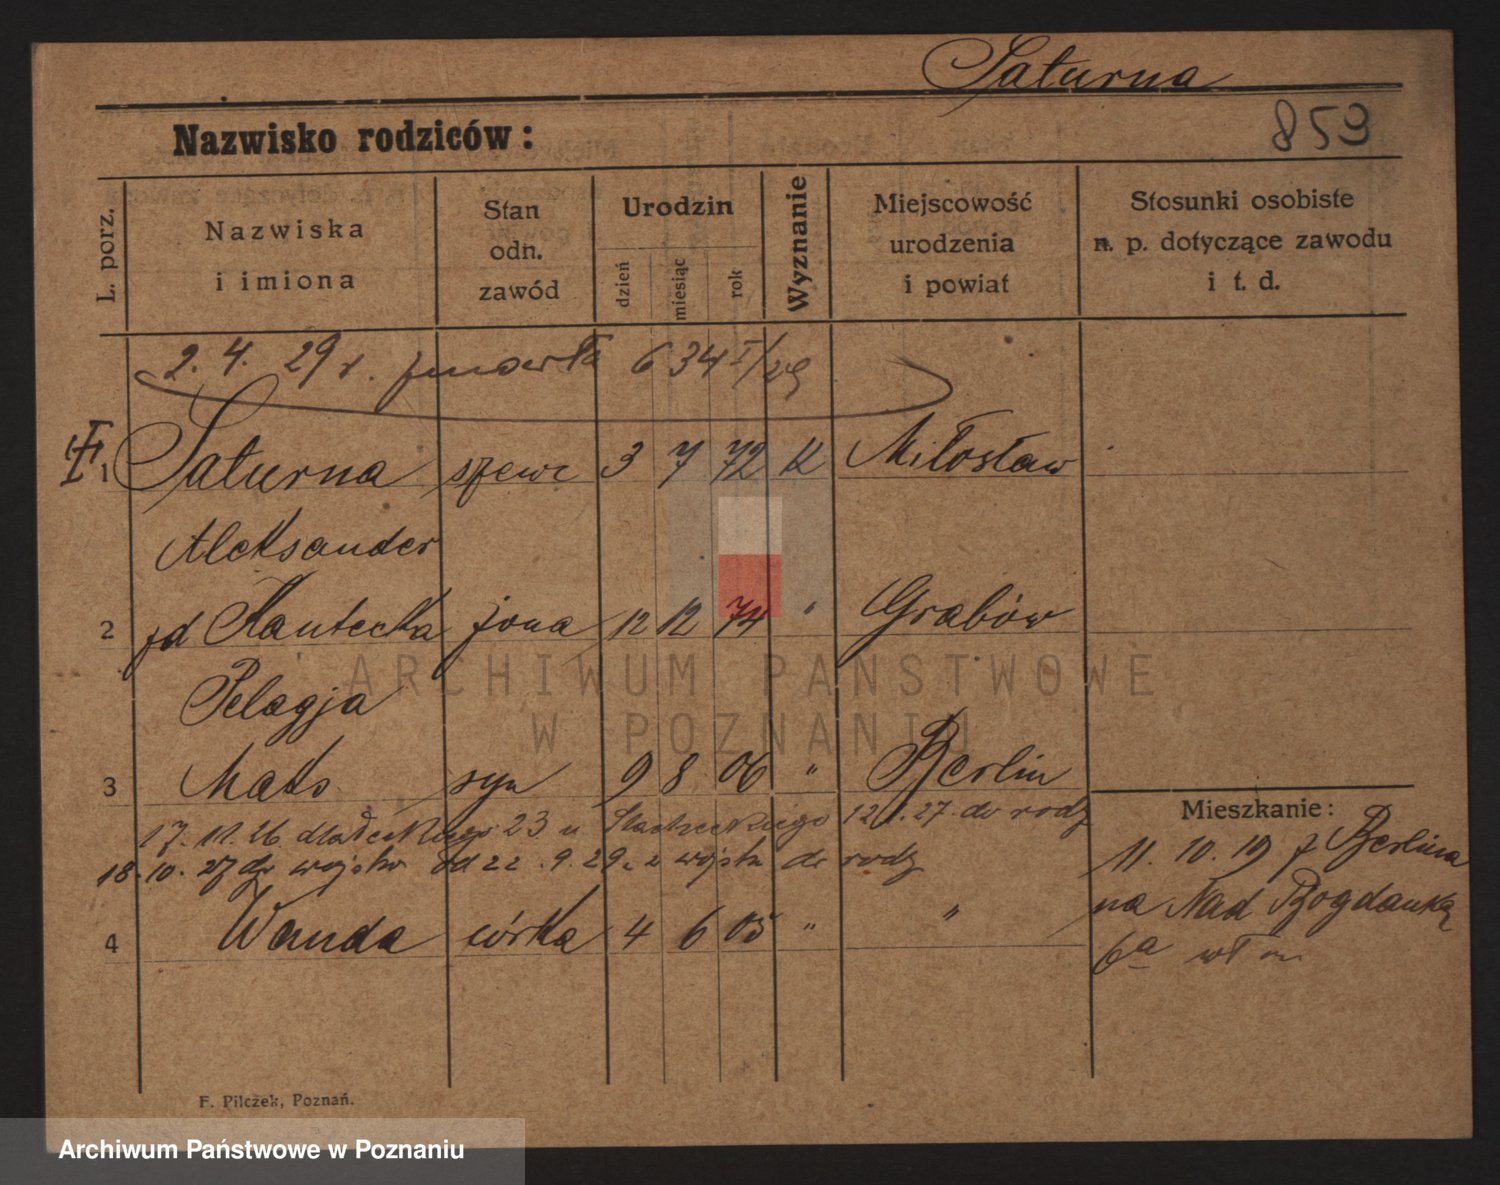 Saturna
Nazwisko rodziców:
853
L. porz.
Nazwiska
i imiona
Stan
odn.
zawód
Urodzin
dzień
miesiąc
rok
Wyznanie
Miejscowość
urodzenia
i powiat
Stosunki osobiste
n. p. dotyczące zawodu
i t. d.
2. 4. 29 r. zmarła 634 I/29
1 Saturna szewc 3 7 72 K Miłosław
Aleksander
2 zd Kantecka żona 12 12 74 " Grabów
Pelagja
ARCHIWUM PAŃSTWOWE
W POZNANIU
3 Maks syn 9 8 06 " Berlin
17. 11. 26. 23 u 12 27. do rodz
18. 10. 27 do wojska od 22. 9. 29. z wojska do rodz
4 Wanda córka 4 6 05 " "
Mieszkanie:
11. 10. 19 z Berlina
na Nad Bogdanką
6a
F. Pilczek, Poznań.
Archiwum Państwowe w Poznaniu